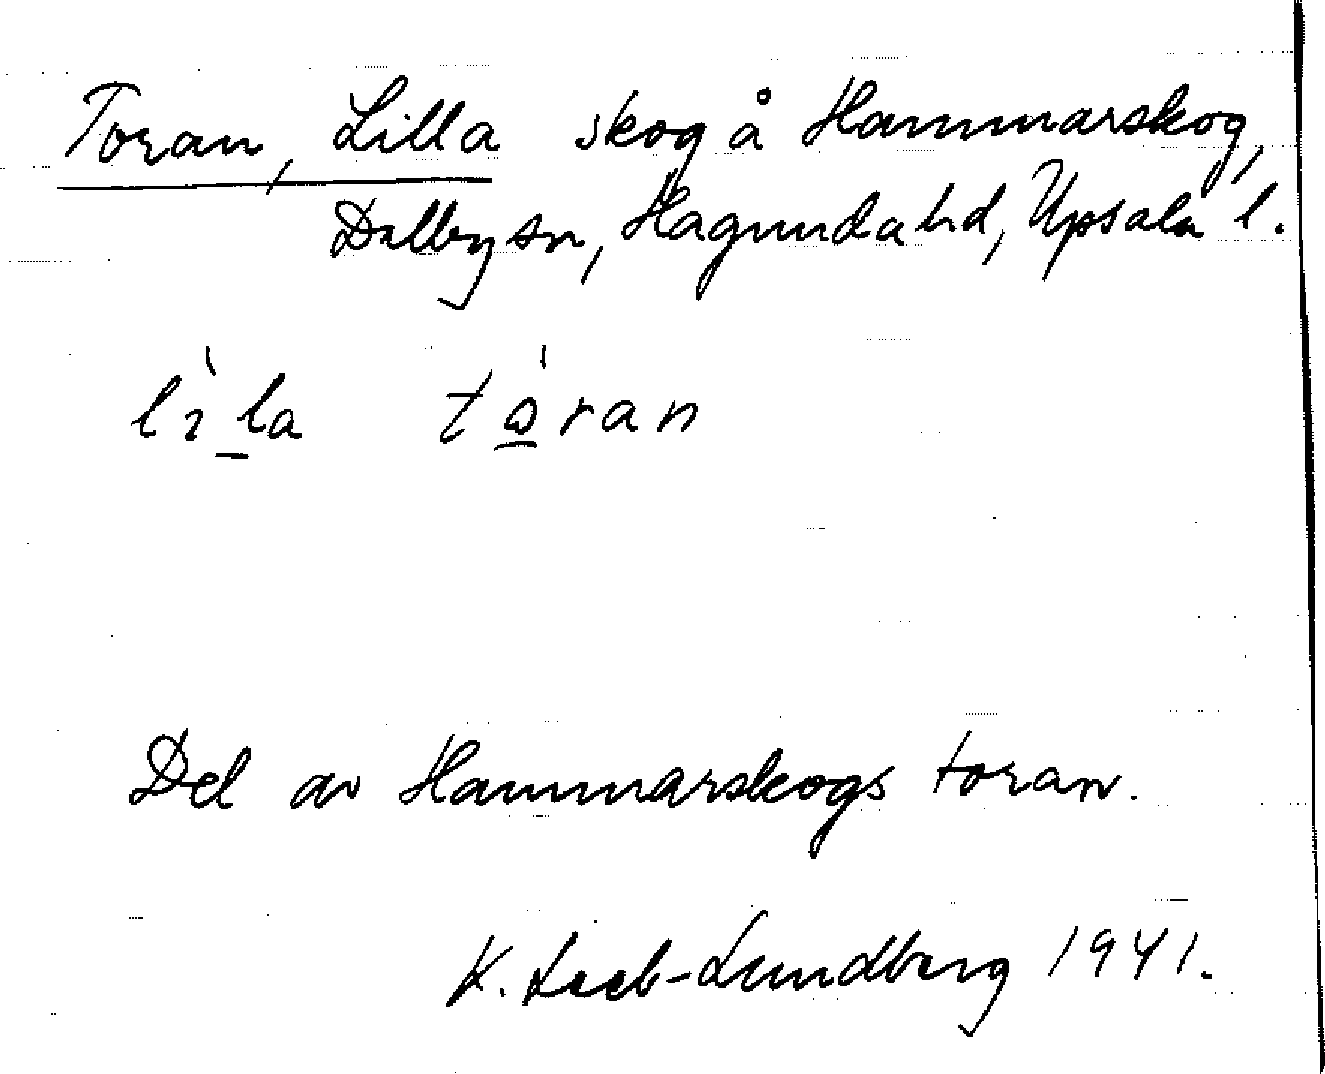 Toran, Lilla skog å Hammarskog,
Dalby sn, Hagunda hd, Upsala l.
lìla tòran
Del av Hammarskogs toran.
K. Leeb-Lundberg 1941.